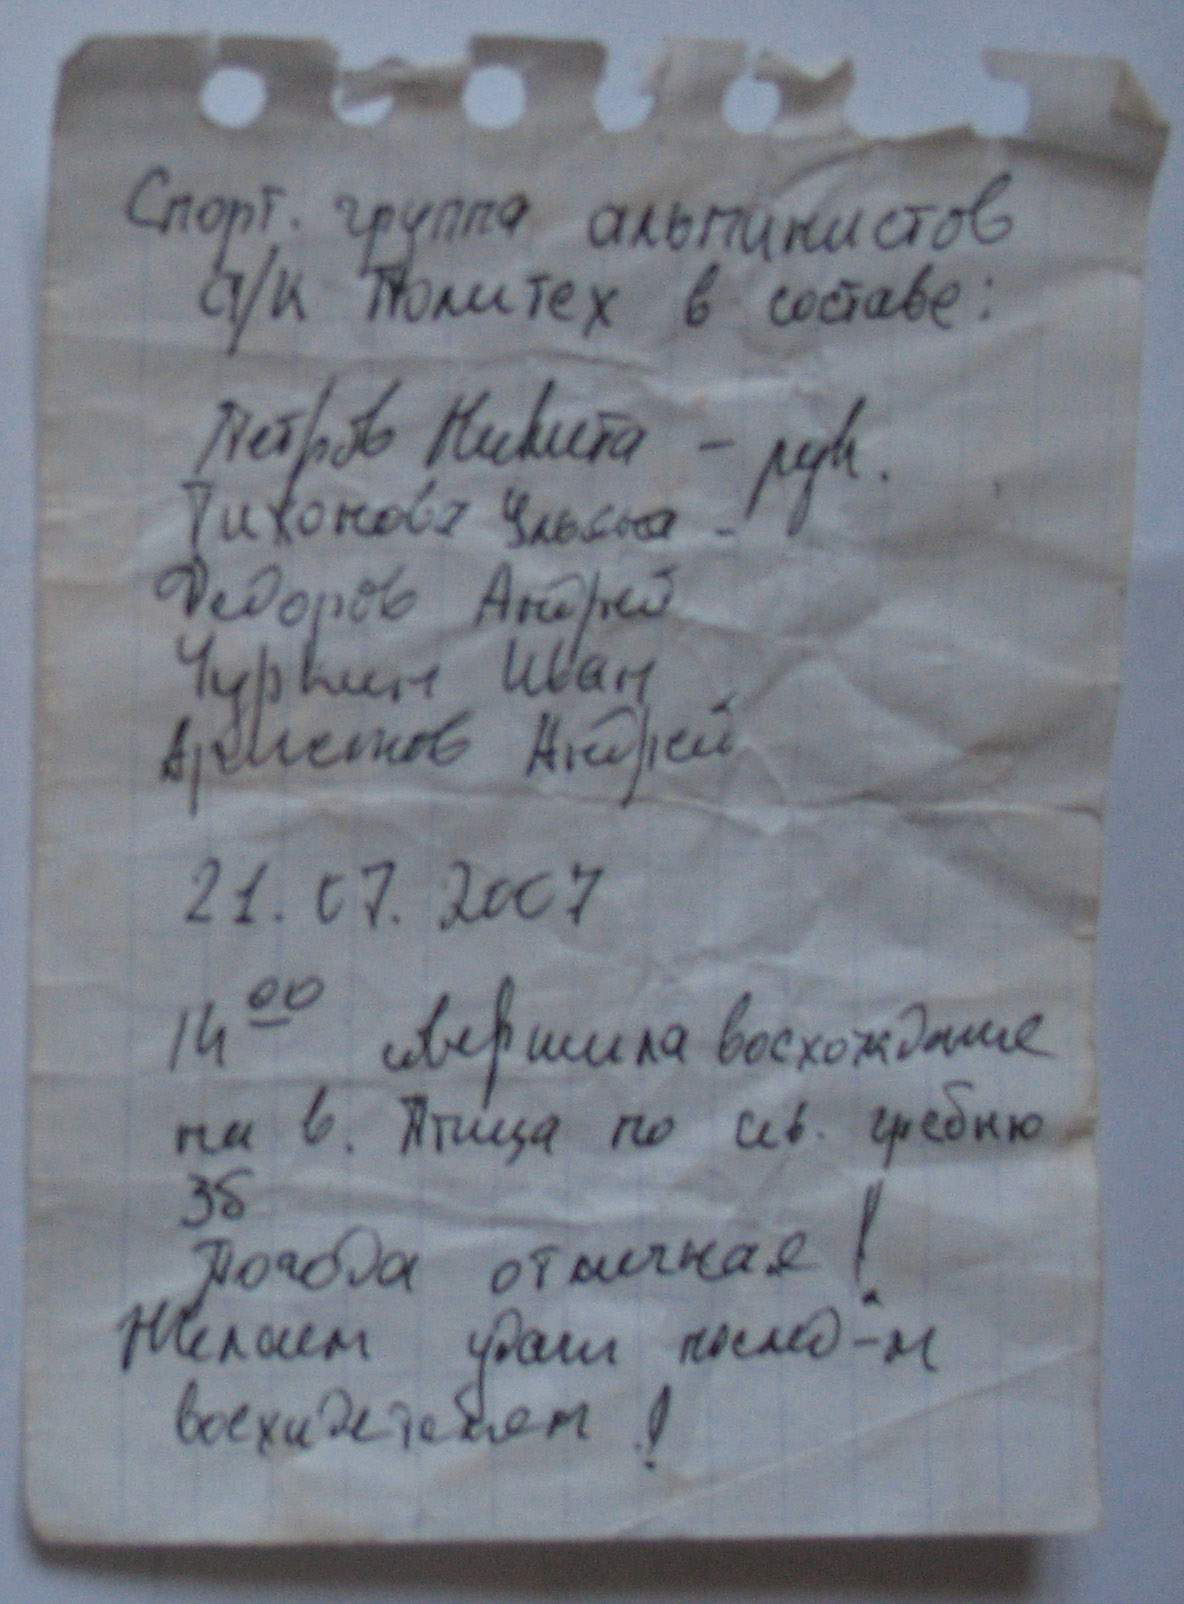 Спорт. группа альпинистов
а/к Политех в составе:
Петров Никита - рук.
Тихонова Ульяна -
Федоров Андрей
Чуркин Иван
Андрей
21.07.2007
14 00 совершила восхождение
на в. Птица по сев. гребню
3б
Погода отличная!
Желаем удачи послед-м
восходителям!